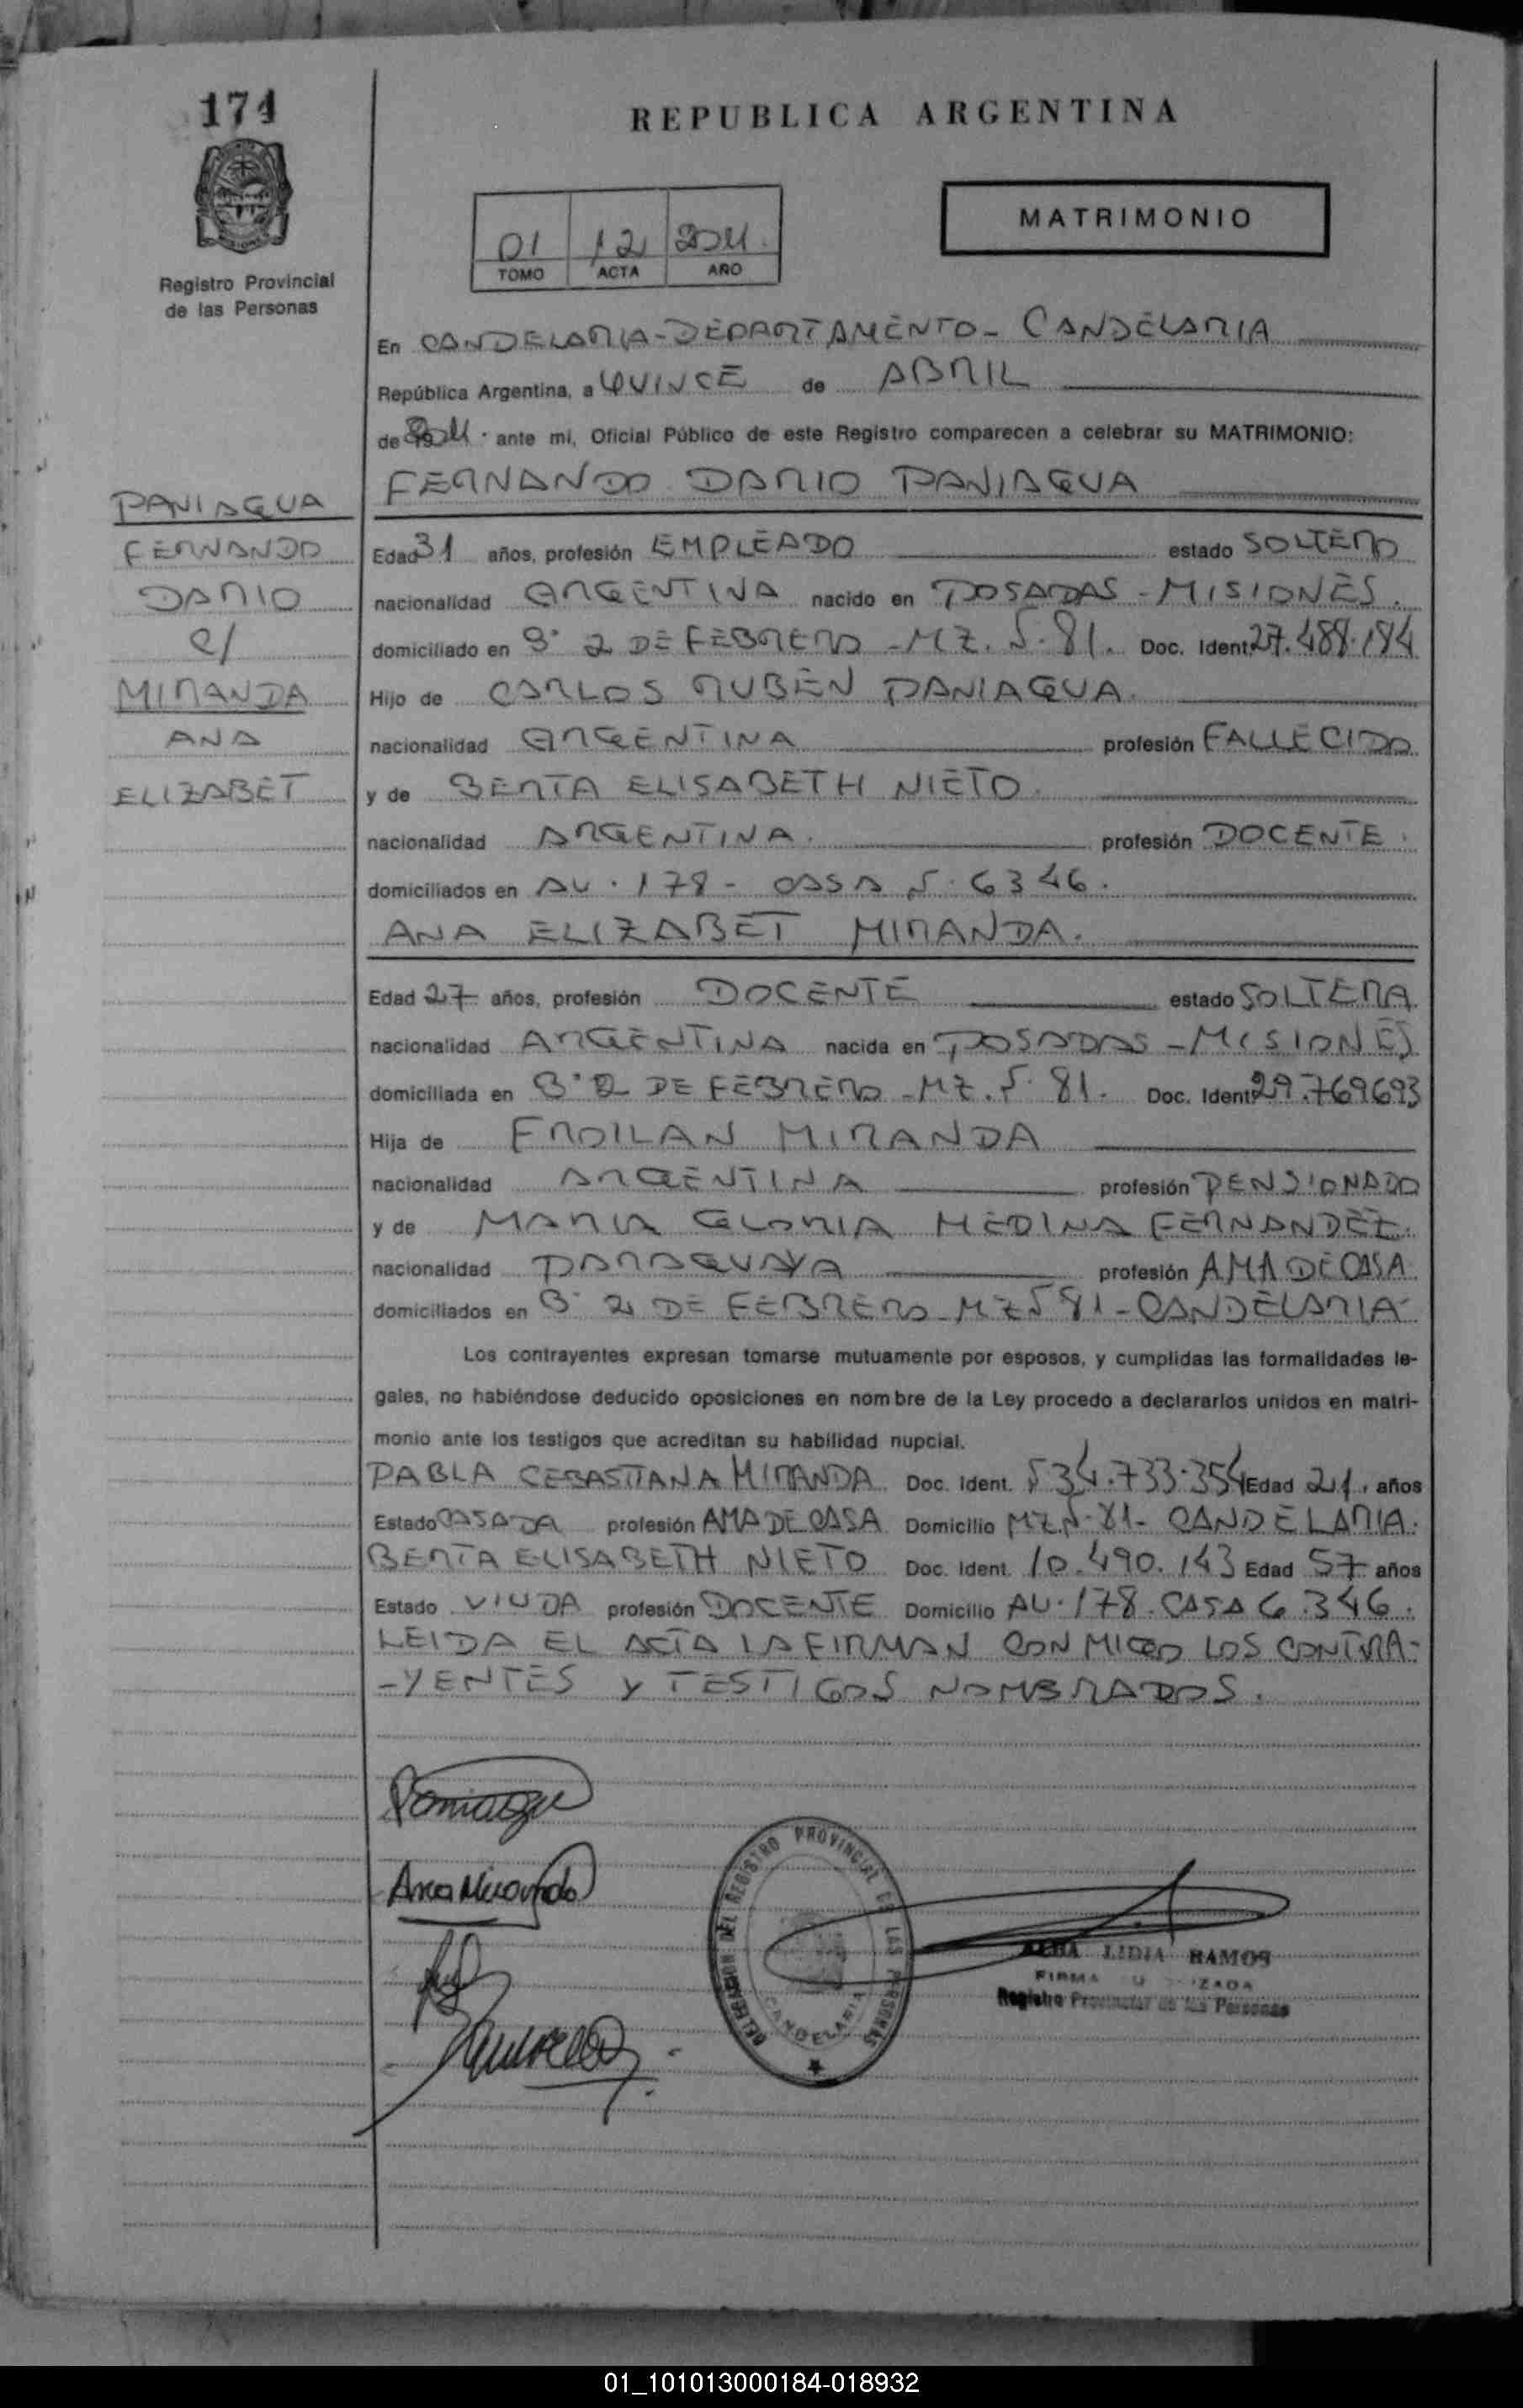 174
REPUBLICA ARGENTINA
MATRIMONIO
01 12 2011.
TOMO ACTA AÑO
Registro Provincial
de las Personas
En CANDELARIA-DEPARTAMENTO- CANDELARIA
República Argentina, a QUINCE de ABRIL
de 2011. ante mi, Oficial Público de este Registro comparecen a celebrar su MATRIMONIO:
FERNANDO DARIO PANIAGUA
PANIAGUA
FERNANDO
DARIO
C/
MIRANDA
ANA
ELIZABET
Edad 31 años, profesión EMPLEADO estado SOLTERO
nacionalidad ARGENTINA nacido en POSADAS - MISIONES.
domiciliado en Bº 2 DE FEBRERO - MZ. Nº 81. Doc. Ident. 27.488.184
Hijo de CARLOS RUBEN PANIAGUA.
nacionalidad ARGENTINA profesión FALLECIDO
y de BERTA ELISABETH NIETO.
nacionalidad ARGENTINA. profesión DOCENTE.
domiciliados en AV. 178 - CASA Nº 6346.
ANA ELIZABET MIRANDA.
Edad 27 años, profesión DOCENTE estado SOLTERA
nacionalidad ARGENTINA nacida en POSADAS - MISIONES
domiciliada en Bº 2 DE FEBRERO - MZ. Nº 81. Doc. Ident. 29.769693
Hija de FROILAN MIRANDA
nacionalidad ARGENTINA profesión PENSIONADO
y de MARIA GLORIA MEDINA FERNANDEZ.
nacionalidad PARAGUAYA profesión AMA DE CASA
domiciliados en Bº 2 DE FEBRERO - MZ Nº 81 - CANDELARIA-
Los contrayentes expresan tomarse mutuamente por esposos, y cumplidas las formalidades le-
gales, no habiéndose deducido oposiciones en nombre de la Ley procedo a declararlos unidos en matri-
monio ante los testigos que acreditan su habilidad nupcial.
PABLA CEBASTIANA MIRANDA Doc. Ident. Nº 34.733.354 Edad 21. años
Estado CASADA profesión AMA DE CASA Domicilio MZ. Nº 81 - CANDELARIA.
BERTA ELISABETH NIETO Doc. Ident. 10.490.143 Edad 57 años
Estado VIUDA profesión DOCENTE Domicilio AV. 178. CASA 6.346.
LEIDA EL ACTA LA FIRMAN CONMIGO LOS CONTRA-
-YENTES Y TESTIGOS NOMBRADOS.
Paniagua
Ana Miranda
DELEGACION DEL REGISTRO PROVINCIAL DE LAS PERSONAS
CANDELARIA
LIDIA RAMOS
FIRMA
Registro Provincial de las Personas
01_101013000184-018932